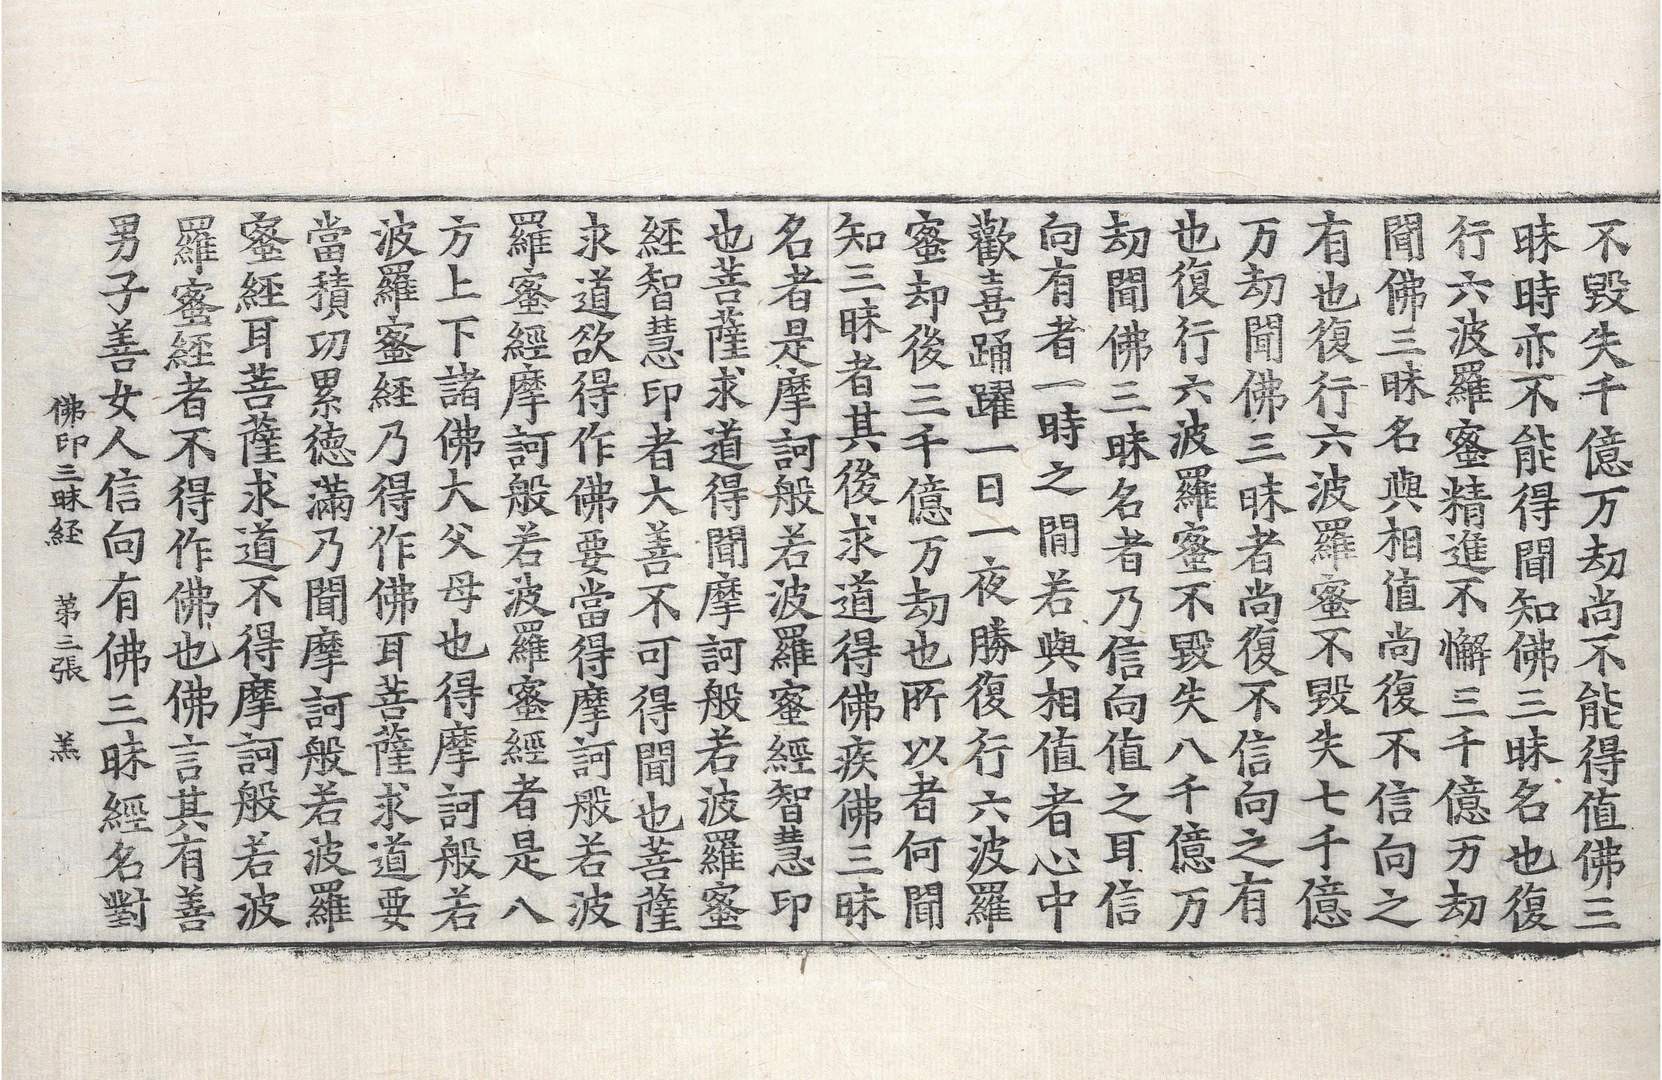 不毀失千億万劫尚不能得值佛三
昧時亦不能得聞知佛三昧名也復
行六波羅蜜精進不懈三千億万劫
聞佛三昧名與相值尚復不信向之
有也復行六波羅蜜不毀失七千億
万劫聞佛三昧者尚復不信向之有
也復行六波羅蜜不毀失八千億万
劫聞佛三昧名者乃信向值之耳信
向有者一時之閒若與相值者心中
歡喜踊躍一日一夜勝復行六波羅
蜜却後三千億万劫也所以者何聞
知三昧者其後求道得佛疾佛三昧
名者是摩訶般若波羅蜜經智慧印
也菩薩求道得聞摩訶般若波羅蜜
經智慧印者大善不可得聞也菩薩
求道欲得作佛要當得摩訶般若波
羅蜜經摩訶般若波羅蜜經者是八
方上下諸佛大父母也得摩訶般若
波羅蜜經乃得作佛耳菩薩求道要
當積功累德滿乃聞摩訶般若波羅
蜜經耳菩薩求道不得摩訶般若波
羅蜜經者不得作佛也佛言其有善
男子善女人信向有佛三昧經名對
佛印三昧経 第三張 羔